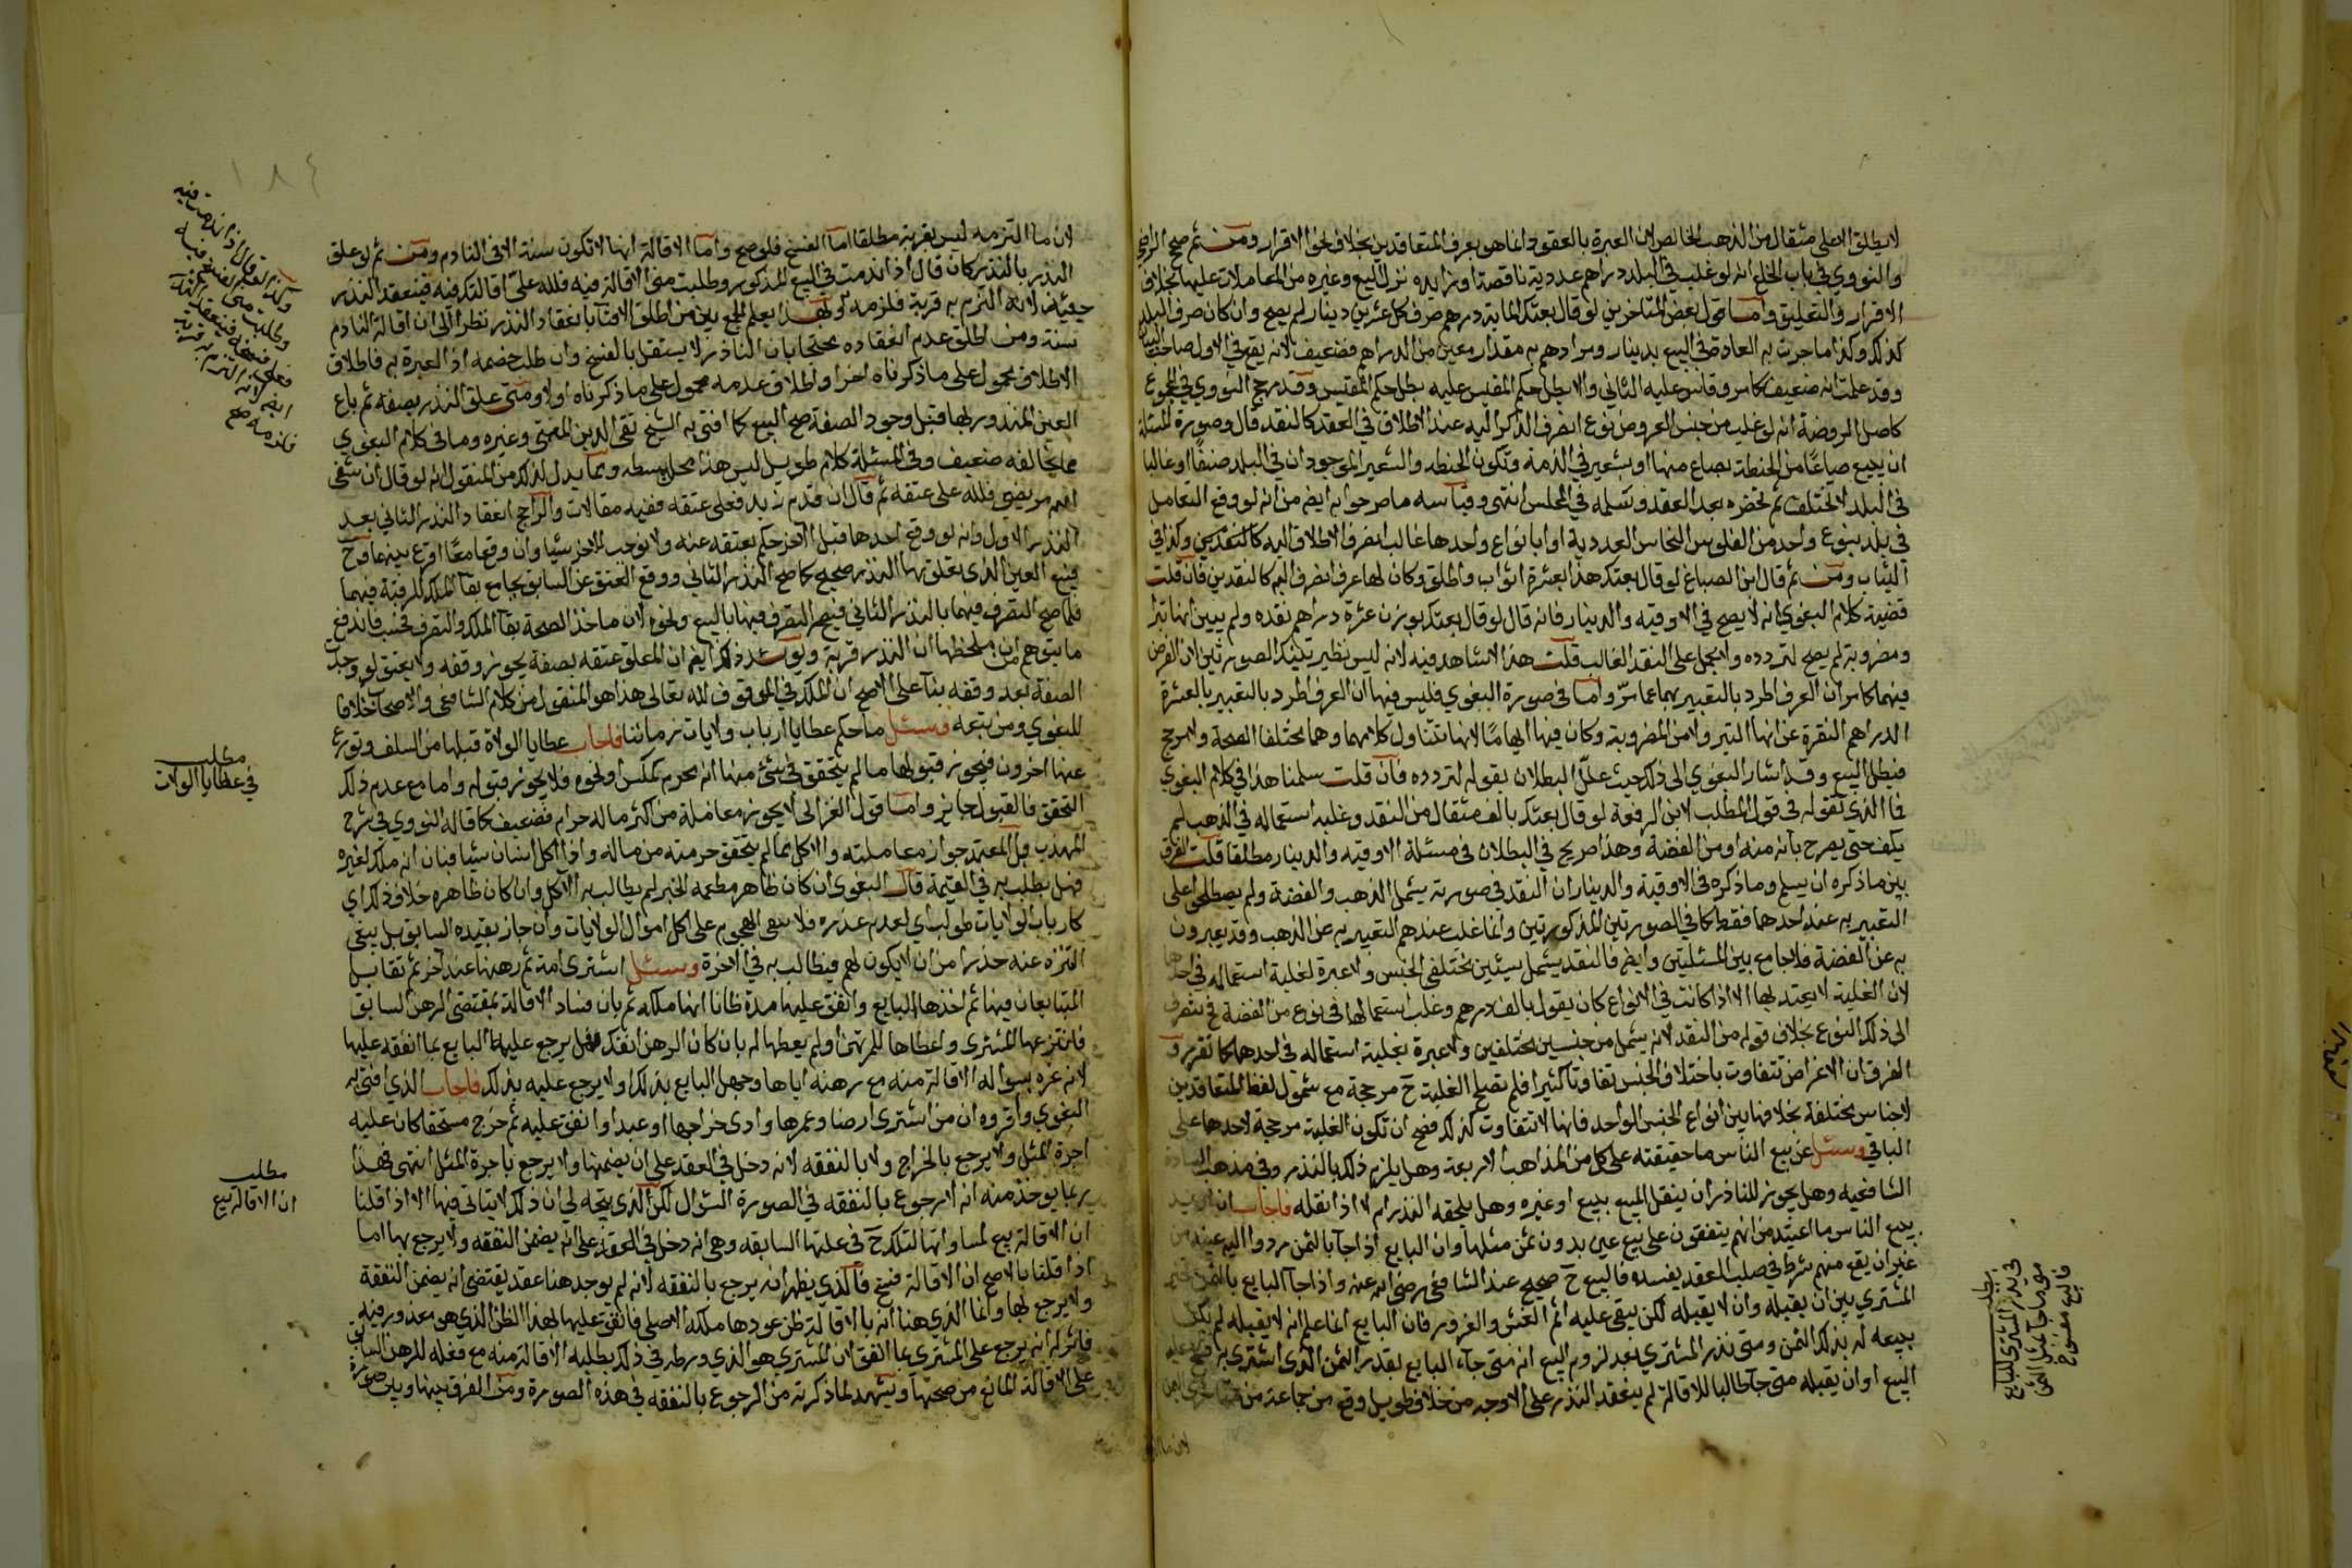 لا يطلق الا على مثقال من الذهب الخالص لان العبرة بالعقود انما هو بعرف المتعاقدين بخلاف نحو الاقرار ومن ثم صحح الرافعي
والنووي في باب الخلع انه لو غلب في البلد دراهم عددية ناقصة او زايده نزل البيع وغيره من المعاملات عليها بخلاف
الاقرار والتعليق واما قول بعض المتاخرين لو قال بعتك الماية درهم صرف كل عشرين دينار لم يصح وان كان صرف البلد
كذلك وكذا ما جرت به العادة في البيع بدينار ومرادهم به مقدار معين من الدراهم فضعيف لانه يقع في الاول صاحب البيان
وقد علمت انه ضعيف كما مر وقاس عليه الثاني والا بطل حكم المقيس عليه بطل حكم المقيس وقد رجح النووي في المجموع
كاصل الروضة انه لو غلب من جنس العروض نوع انصرف الذكر اليه عند الاطلاق في العقد كالنقد قال وصورة المسئلة
ان يبيع صاعًا من الحنطة بصاع منها او بشعير في الذمة وتكون الحنطه والشعير الموجودان في البلد صنفًا او غالبا
في البلد لا تختلف ثم تحضره بعد العقد وتسلمه في المجلس انتهى وقياسه ما صرحوا به ايضا من انه لو وقع التعامل
في بلد بنوع واحد من الفلوس النحاس العددية او بانواع واحدها غالب انصرف الاطلاق اليه كالنقدين وكذا في
الثياب ومن ثم قال ابن الصباغ لو قال بعتك هذا بعشرة اثواب واطلق وكان لها عرف انصرف اليه كالنقدين فان قلت
قضية كلام البغوي انه لا يصح في الاوقيه والدينار فانه قال لو قال بعتك بوزن عشرة دراهم نقده ولم يبين انها تبرا
ومضروبة لم يصح لتردده ولا يحمل على النقد الغالب قلت هذا لا شاهد فيه لانه ليس نظير تينك الصورتين لان الفرض
فيهما كما مر ان العرف اطرد بالتعبير بهما عما مرّ واما في صورة البغوي فليس فيها ان العرف اطرد بالتعبير بالعشرة
الدراهم النقرة عن انها التبر ولا من المضروبة وكان فيها ايهامًا لانها تتناول كلا منهما وهما مختلفا الصحة ولا مرجح
فبطل البيع وقد اشار البغوي الى ذلك حيث علل البطلان بقوله لتردده فان قلت سلمنا هذا في كلام البغوي
فما الذي تقوله في قول المطلب لابن الرفعة لو قال بعتك بالف مثقال من النقد وغلب استعماله في الذهب لم
يكف حتى يصرح بانه منه او من الفضة وهذا صريح في البطلان في مسئلة الاوقيه والدينار مطلقا قلت الفرق
بين ما ذكره ان يسلم وما ذكره في الاوقية والدينار ان النقد في صورته يشمل الذهب والفضة ولم يصطلحوا على
التعبير به عند احدهما فقط كما في الصورتين المذكورتين وانما غلب عندهم التعبير به عن الذهب وقد يعبرون
به عن الفضة فلا جامع بين المسئلتين وايضا فالنقد يشمل شيئين مختلفي الجنس ولا عبرة لغلبة استعماله في احدها
لان الغلبة لا يعتد بها الا اذا كانت في الانواع كان يقول بالف درهم وغلب استعمالها في نوع من الفضة فينصرف
الى ذلك النوع بخلاف قوله من النقد لانه يشمل من جنسين مختلفين ولا عبرة بغلبة استعماله في احدهما كما تقرر و
الفرق ان الاغراض تتفاوت باختلاف الجنس تفاوتا كثيرا فلم تصلح الغلبة ح مرجحة مع شمول لفظ المتعاقدين
لاجناس مختلفة بخلافها بين انواع الجنس الواحد فانها لا تتفاوت كذلك فصح ان تكون الغلبة مرجحة لاحدها على
الباقي وسئل عن بيع الناس ما حقيقته على كل من المذاهب الاربعة وهل يلزم ذلك بالنذر وفي مذهب السادة
الشافعيه وهل يجوز للناذر ان ينقل المبيع ببيع او غيره وهل يلحقه النذر ام لا اذا نقله فاجاب ان اريد
ببيع الناس ما اعتيد من انهم يتفقون على بيع عين بدون ثمن مثلها وان البايع اذا جآ بالثمن ردوا اليه عينه من
غير ان يقع منهم شرط في صلب العقد يفسده فالبيع ح صحيح عند الشافعي رضي الله عنه واذا جآ البايع بالثمن تخير
المشتري بين ان يقبله وان لا يقبله لكن يبقى عليه اثم الغش والغرور فان البايع انما علم انه لا يقبله لم يكن
بيعه له بذلك الثمن ومتى نذر المشتري بعد لزوم البيع انه متى جاء البايع بقدر الثمن الذي اشترى به فسخ عليه
البيع او ان يقبله متى جآ طالبا للاقالة لم ينعقد النذر على الاوجه من خلاف طويل وقع من جماعة من
لان ما
مطلب
في نذر المشتري للبايع
متى ما جآ بمثل الثمن
فالبيع مفسوخ
١٨٤
لان ما التزمه ليس بقربة مطلقا اما الفسخ فلوضح واما الاقالة انها لا تكون سنة الا في النادم ومن ثم لو علق
النذر بالنذير كان قال اذا ندمت في البيع المذكور وطلبت مني الاقالة فيه فلله عليّ اقالتك فيه فينعقد النذر
حينئذ لانه التزم به قربة فلزمه وبهذا يعلم الجمع بين من اطلق الافتآ بانعقاد النذر نظرا الى ان اقالة النادم
سنة ومن اطلق عدم انعقاده محتجا بان الناذر لا يستقل بالفسخ وان طلب خصمه اذ العبرة به فاطلاق
الاطلاق محمول على ما ذكرناه اخرا واطلاق عدمه محمول على ما ذكرناه اولا ومتى علق النذر بصفة ثم باع
العين المنذور بها قبل وجود الصفة صح البيع كما افتى به الشيخ تقي الدين وغيره وما في كلام البغوي
مما يخالفه ضعيف وفي المسئلة كلام طويل ليس هذا محل بسطه ومما يدل لذلك من المنقول انه لو قال ان شفى
الله مريضي فلله علي عتقه ثم قال ان قدم زيد فعلى عتقه ففيه مقالات والراجح انعقاد النذر الثاني بعد
النذر الاول وانه لو وقع احدها قبل الآخر حكم بعتقه عنه ولا يوجب للاخر شيا وان وقعا معًا اقرع بينهما فرح
فبيع العين الذى تعلق بها النذر صحيح كما صح النذر الثاني ووقع العتق عن السابق بجامع بقآ الملك للرقبة فيهما
فكما صح التصرف فيهما بالنذر الثاني فيصح التصرف فيها بالبيع ونحوه لان ماخذ الصحة بقآ الملك والتصرف فحسب فاندفع
ما يتوهم ان ملحظها ان النذر قربة ويؤيد ذلك ايضا ان المعلق عتقه بصفة يجوز وقفه ولا يعتق لو وجدت
الصفة بعد وقفه بنآ على الاصح ان الملك في الموقوف لله تعالى هذا هو المنقول من كلام الشافعي والاصحاب خلافا
للبغوي ومن تبعه وسئل ما حكم عطايا ارباب ولايات زماننا فاجاب عطايا الولاة قبلها من السلف وتورع
عنها اخرون فيجوز قبولها ما لم يتحقق في شئ منها انه محرم كمكس ونحوه فلا يجوز قبوله واما مع عدم ذلك
التحقق فالقبول جايز واما قول الغزالي لا يجوز معاملة من اكثر ماله حرام فضعيف كما قاله النووي في شرح
المهذب بل المعتمد جواز معاملته والاكل مما لم يتحقق حرمته من ماله واذا اكل انسان شيا فبان انه ملك لغيره
فهل يطلب به في القيمة قال البغوي ان كان ظاهر مطعمه الخير لم يطالب به الآكل وان كان ظاهره خلاف ذلك اي
كارباب الولايات طولب اي لعدم عذره فلا ينبغي الهجوم على اكل اموال الولايات وان جاز بقيده السابق بل ينبغي
التنزه عنه حذرا من ان لا يكون لهم فيطالب به في الاخرة وسئل اشترى امة ثم رهنها عند آخر ثم تقايل
المتبايعان فيها ثم اخذها البايع وانفق عليها مدة ظانا انها ملكه ثم بان فساد الاقالة بمقتضى الرهن السابق
فانتزعها المشتري واعطاها للمرتهن او لم يعطها له بان كان الرهن انفك فهل يرجع عليها البايع بما انفقه عليها
لانه غره بسواله الاقالة منه مع رهنه اياها وجهل البايع بذلك او لا يرجع عليه بذلك فاجاب الذي افتى به
البغوي واقروه ان من اشترى ارضا وعمرها وادى خراجها او عبدا وانفق عليه ثم خرج مستحقا كان عليه
اجرة المثل ولا يرجع بالخراج ولا بالنفقه لانه دخل في العقد على ان يضمنها ولا يرجع باجرة المثل انتهى فهذا
ربما يوخذ منه انه لا رجوع بالنفقه في الصورة السؤال لكن الذي يتجه لي ان ذلك لا يتاتى فيها الا اذا قلنا
ان الاقالة بيع لمساواتها لتلك ح في علتها السابقه وهي انه دخل في العقد على انه يضمن النفقه ولا يرجع بها اما
اذا قلنا بالاصح ان الاقالة فسخ فالذي يظهر انه يرجع بالنفقه لانه لم يوجد هنا عقد يقتضي انه يضمن النفقة
ولا يرجع بها وانما الذي هنا انه بالاقالة ظن عودها ملكه الاصلي فانفق عليها لهذا الظن الذي هو معذور فيه
فاثر له انه يرجع على المشتري بما انفق لان المشتري هو الذي ورطه في ذلك بطلبه الاقالة منه مع فعله للرهن السابق
على الاقالة المانع من صحتها ويشهد لما ذكرته من الرجوع بالنفقه في هذه الصورة ومن الفرق بينها وبين صورة
وكذا لو قال اذا ندمت فيه
وطلبت مني الفسخ
فعلي فسخه فينعقد
ايضا لانه التزم به قربة
فلزمه صح
مطلب
في عطايا الولات
مطلب
ان الاقالة بيع